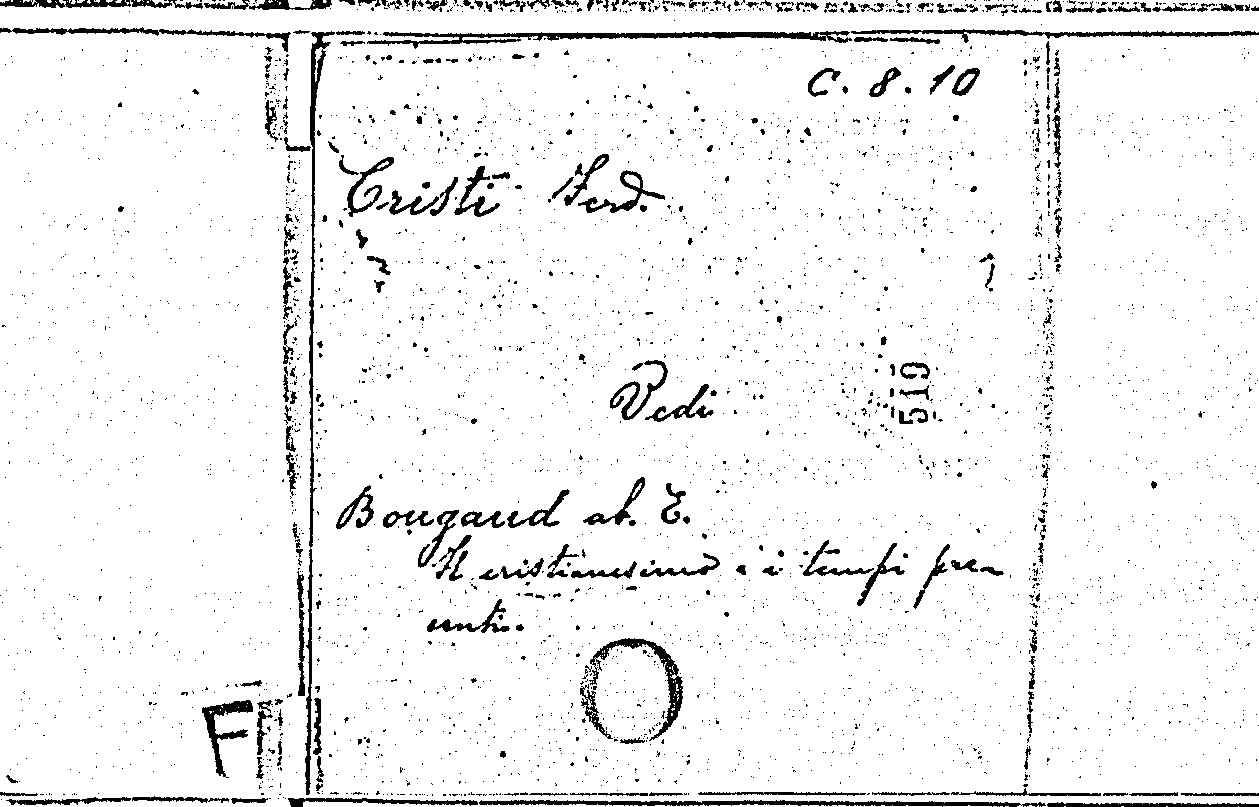 C. 8. 10
Cristi Ferd.
519
Vedi
Bougaud ab. E.
Il cristianesimo e i tempi pres
enti.
F